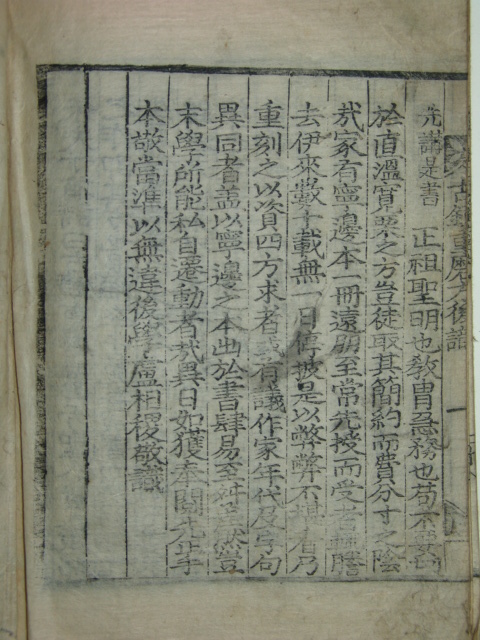 先講是書 正祖聖明也教胄急務也苟不
於直溫寬栗之方豈徒取其簡約而費分寸之陰
㢤家有寧邊本一冊遠朋至常先授而受者輒謄
去伊來數十載無一日停披是以弊弊不堪看乃
重刻之以資四方求者或有議作家年代及字句
異同者盖以寧邊之本出於書肆易至舛然豈
末學所能私自遷動者㢤異日如獲奉閱先正手
本敬當準以無違後學盧相稷敬識